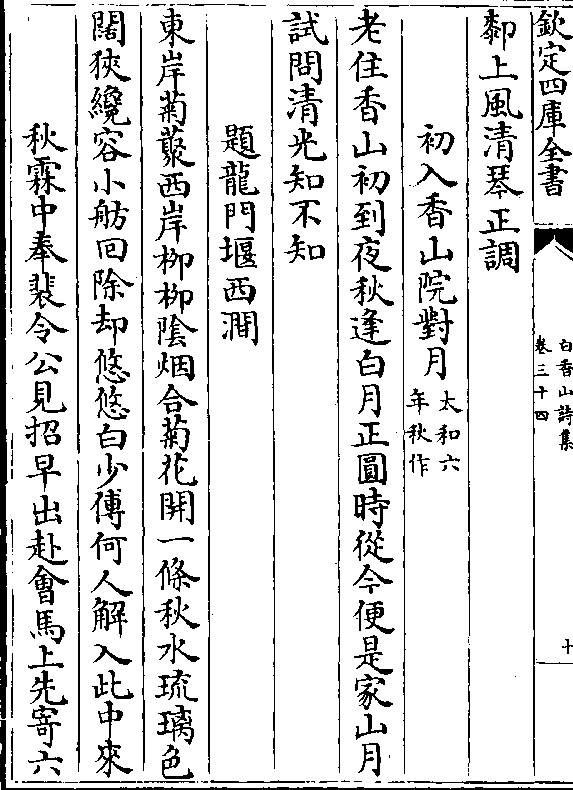 欽定四庫全書
白香山詩集
卷三十四
十
鄣上風清琴正調
初入香山院對月
太和六
年秋作
老住香山初到夜秋逢白月正圓時從今便是家山月
試問清光知不知
題龍門堰西澗
東岸菊藂西岸柳柳隂烟合菊花開一條秋水琉璃色
闊狹纔容小舫回除却悠悠白少傅何人解入此中來
秋霖中奉裴令公見招早出赴會馬上先寄六